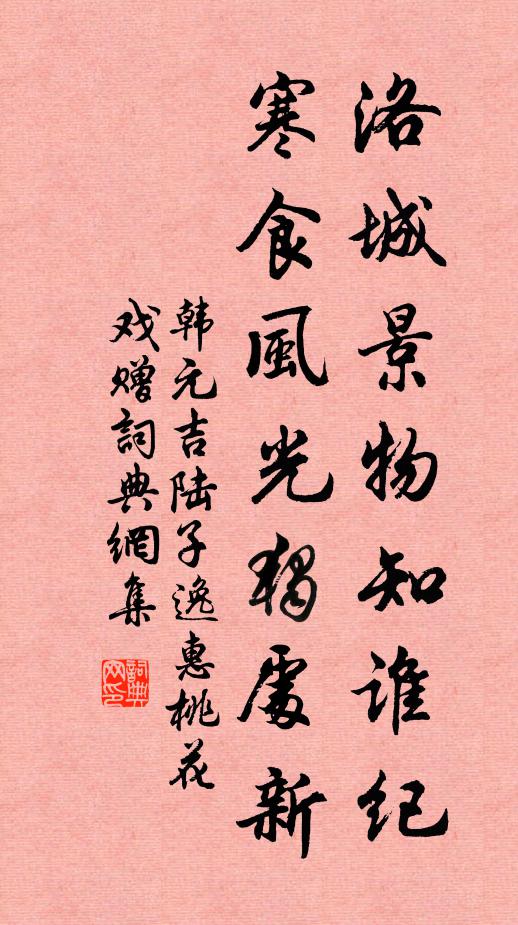 洛城景物知谁纪
寒食風光觸處新
韩元吉陆子逸惠桃花
戏赠詞典網集
詞典
网印